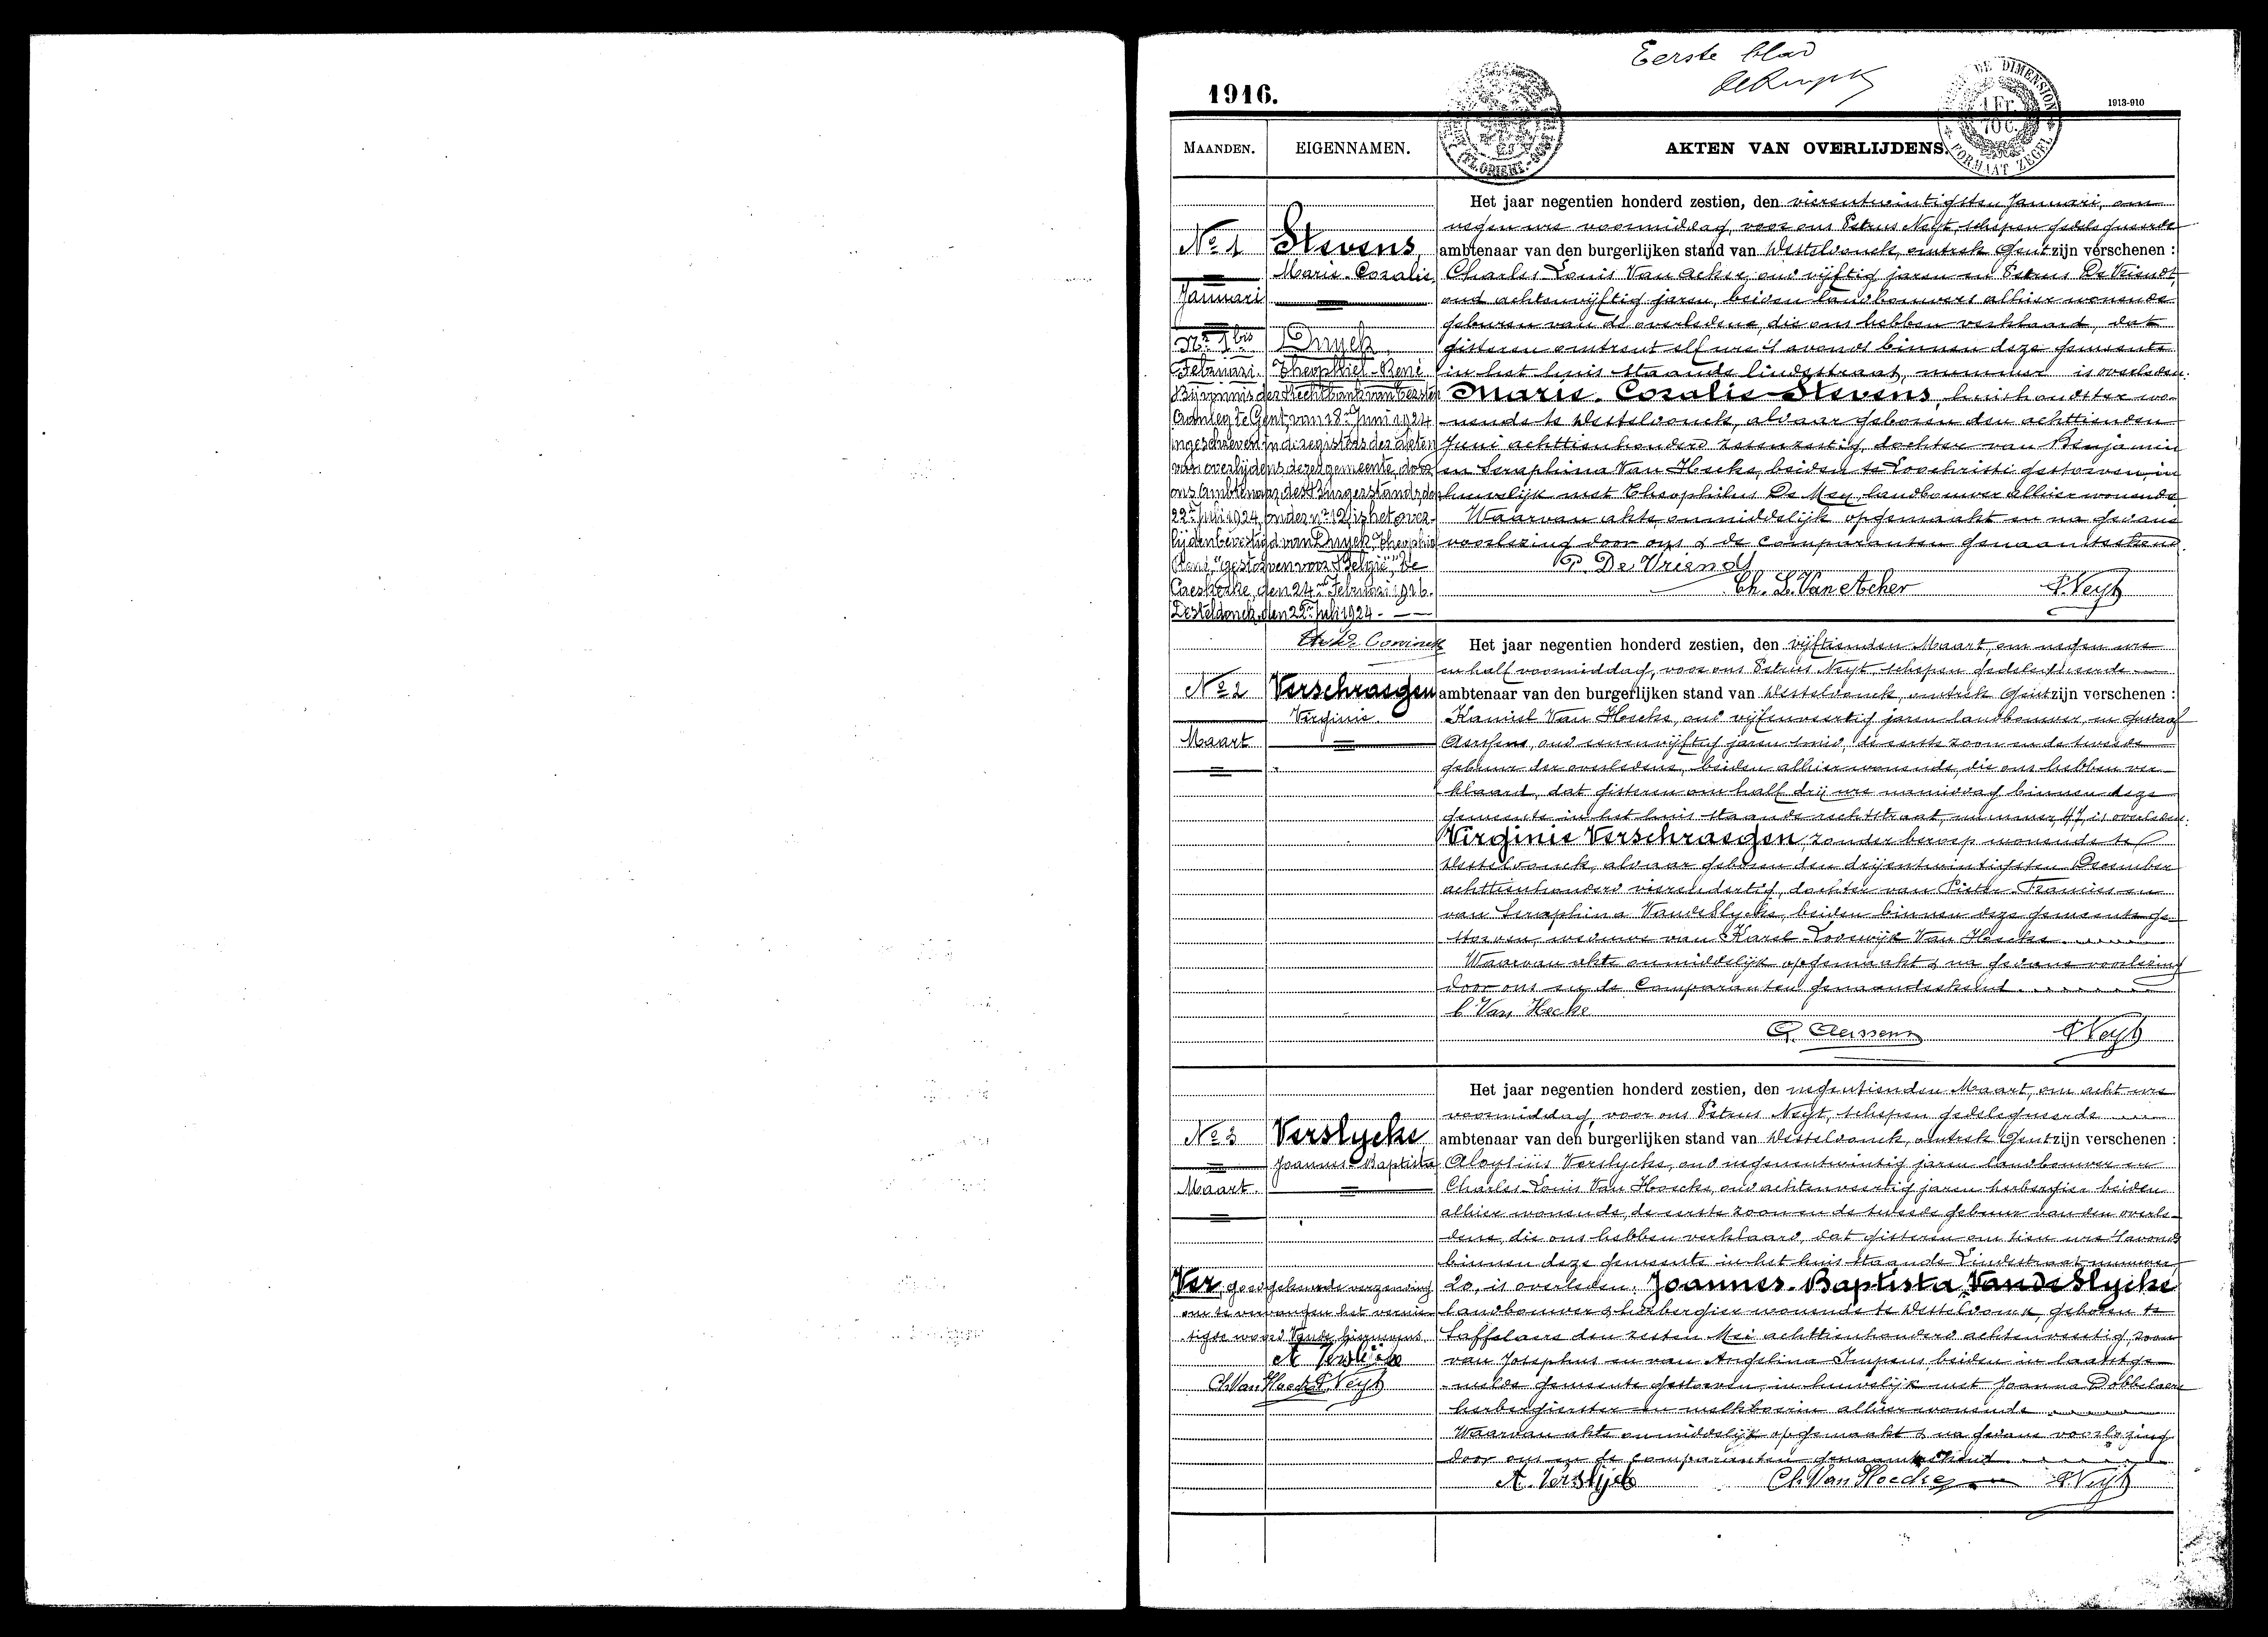 Eerste blad
1916.
1913-910
DE DIMENSION
1 Fr.
70 C.
FORMAAT ZEGEL
MAANDEN.
EIGENNAMEN.
AKTEN VAN OVERLIJDENS.
No 1
Januari
Stevens,
Marie-Coralie.
Het jaar negentien honderd zestien, den vierentwintigsten Januari, om
negen ure voormiddag, voor ons Petrus Neyt, schepen gedelegueerde
ambtenaar van den burgerlijken stand van Desteldonck, omtrek Gent zijn verschenen :
Charles Louis Van Acker, oud vijftig jaren en Petrus De Vriendt,
oud achtenvijftig jaren, beiden landbouwers alhier wonende
geburen van de overledene, die ons hebben verklaard, dat
gisteren omtrent elf ure 's avonds binnen deze gemeente
in het huis staande lindestraat, nummer is overleden:
Marie-Coralie Stevens, huishoudster wo-
nende te Desteldonck, aldaar geboren den achttienden
Juni achttienhonderd zesenzestig, dochter van Benjamin
en Seraphina Van Hecke, beiden te Loochristi gestorven, in
huwelijk met Theophilus De Mey, landbouwer alhier wonende
Waarvan akte onmiddelijk opgemaakt en na gedane
voorlezing door ons & de comparanten genaamteekend.
P. De Vriendt
Ch. L. Van Acker
P. Neyt
Nr 1bis
Februari.
Duyck,
Theophiel-René
Bij vonnis der Rechtbank van Eersten
Aanleg te Gent, van 18n Juni 1924
ingeschreven in de registers der akten
van overlijdens dezer gemeente, door
ons Ambtenaar des Burgerstands, den
22n Juli 1924, onder nr 12, is het over-
lijden bevestigd van Duyck Theophiel
René, "Gestorven voor België," te
Caeskerke, den 24n Februari 1916.
Desteldonck, den 22n Juli 1924.
No 2
Maart
Verschraegen
Virginie.
Het jaar negentien honderd zestien, den vijftienden Maart, om negen ure
en half voormiddag, voor ons Petrus Neyt, schepen gedelegueerde
ambtenaar van den burgerlijken stand van Desteldonck, omtrek Gent zijn verschenen :
Kamiel Van Hecke, oud vijfenveertig jaren landbouwer, en Gustaaf
Aerssens, oud eenenvijftig jaren smid, de eerste zoon en de tweede
gebuur der overledene, beiden alhier wonende, die ons hebben ver-
klaard, dat gisteren om half drij ure namiddag binnen deze
gemeente in het huis staande rechtstraat, nummer 47, is overleden:
Virginie Verschraegen, zonder beroep wonende te
Desteldonck, aldaar geboren den drijentwintigsten December
achttienhonderd vierendertig, dochter van Pieter-Francies en
van Seraphina VandeSlycke, beiden binnen deze gemeente ge-
storven, weduwe van Karel-Lodewijk Van Hecke
Waarvan akte onmiddelijk opgemaakt & na gedane voorlezing
door ons en de Comparanten genaamteekend
C. Van Hecke
G. Aerssens
P. Neyt
No 3
Maart.
Verslycke
Joannes-Baptista
Het jaar negentien honderd zestien, den negentienden Maart, om acht ure
voormiddag, voor ons Petrus Neyt, schepen gedelegueerde
ambtenaar van den burgerlijken stand van Desteldonck, omtrek Gent zijn verschenen :
Aloysius Verslycke, oud negenentwintig jaren landbouwer en
Charles Louis Van Hoecke, oud achtenveertig jaren herbergier beiden
alhier wonende, de eerste zoon en de tweede gebuur van den overle-
dene, die ons hebben verklaard, dat gisteren om tien ure 's avonds
binnen deze gemeente in het huis staande Lindestraat nummer
20, is overleden: Joannes-Baptista VandeSlycke
landbouwer & herbergier wonende te Desteldonck, geboren te
Saffelaere den zesten Mei achttienhonderd achtenveertig, zoon
van Josephus en van Angelina Impens, beiden in laatstge-
melde gemeente gestorven, in huwelijk met Joanna Dobbelaere
herbergierster en melkboerin alhier wonende
Waarvan akte onmiddelijk opgemaakt & na gedane voorlezing
door ons en de comparanten genaamteekend
A. Verslycke
Ch. Van Hoecke
P. Neyt
Ver, goedgekeurde verzending
om te vervangen het vernie-
tigde woord Vande hiernevens
A Verslycke
Ch. Van Hoecke P. Neyt